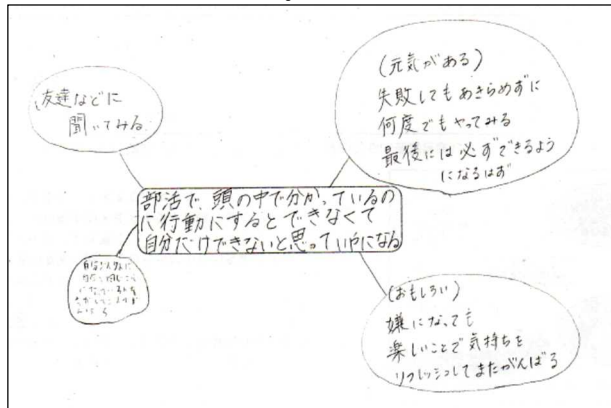 友達などに
聞いてみる
(元気がある)
失敗してもあきらめずに
何度でもやってみる
最後には必ずできるよう
になるはず
部活で、頭の中で分かっているの
に行動にするとできなくて
自分だけできないと思っていやになる
(おもしろい)
嫌になっても
楽しいことで気持ちを
リフレッシュしてまたがんばる